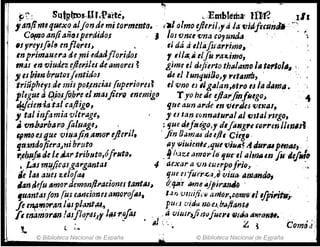 y anſi me quexo al ſon de mi tormento.
Como anſi años perdidos
os yreys ſolo en flores,
en primauera de mi edad floridos
mas en viudez eſteriles de amores?
y es bien brutos ſentidos
triũpheys de mis potencias ſuperiores?
plegue à Dios ſobre el mas fiero enemigo
deſcienda tal caſtigo,
y tal infamia vltrage,
à vn barbaro ſaluage,
como es que viua ſin amor eſteril,
quando fiera, ni bruto
rehuſa de le dar tributo, ò fruto.
Las muſicas gargantas
de las aues zeloſas
dan de ſu amor demonſtraciones tantas,
quantas ſon ſus canciones amoroſas,
ſe enamoran las plantas,
ſe enamoran las flores, y las roſas
Emblema
al olmo eſteril, y à la vid fecunda
los vnce vna coyunda
el dà à ella ſu arrimo,
y ella à el ſu razimo,
gime el deſierto thalamo la tortola,
de el
el vno es el galan, otro es la dama.
Y yo he de eſtar ſin fuego,
que aun arde en verdes venas,
y es tan connatural al vital riego,
que de fuego, y de ſangre corren llenas?
ſin llamas de eſte Ciego
ay viuiente, que viua? A duras penas,
haze amor lo que el alma en ſu
dexar a vn cuerpo frio,
amando,
que ame
como el eſpiritu,
pues vida no es, baſtante
à viuir, ſi no fuera vida amante.
Z 3
Como
© Biblioteca Nacional de España
© Biblioteca Nacional de España